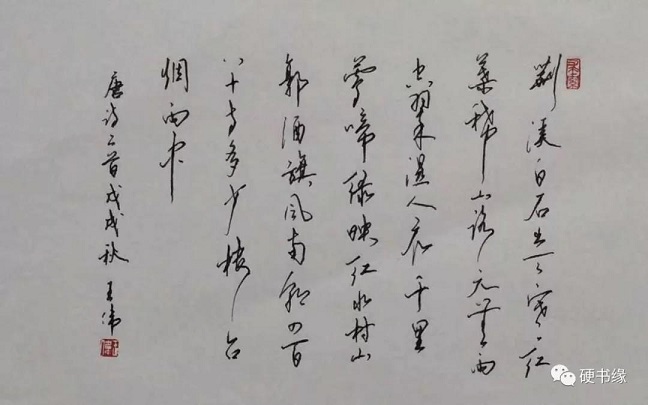 荆溪白石出天寒红
葉稀山路元無雨
空翠湿人衣千里
莺啼绿映红水村山
郭酒旗风南朝四百
八十寺多少楼台
烟雨中
唐诗二首戊戌秋王伟
硬书缘